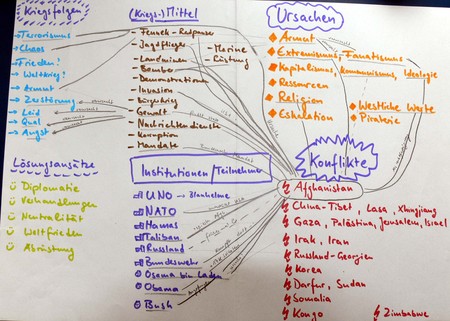 Kriegsfolgen
Terrorismus
Chaos
Frieden?
Weltkrieg?
Armut
Zerstörung
Leid
Qual
Angst
Lösungsansätze
Diplomatie
Verhandlungen
Neutralität
Weltfrieden
Abrüstung
(Kriegs-)Mittel
- Jagdflieger
- Landminen
- Bomber
- Demonstrationen
- Invasion
- Bürgerkrieg
- Gewalt
- Nachrichtendienste
- Korruption
- Mandate
- Marine
- Rüstung
Institutionen / Teilnehmer
UNO → Blauhelme
NATO
Hamas
Taliban
Russland
Bundeswehr
Osama bin Laden
Obama
Bush
Ursachen
Armut
Extremismus, Fanatismus
Kapitalismus, Kommunismus, Ideologie
Ressourcen
Religion
Eskalation
Westliche Werte
Piraterie
Konflikte
Afghanistan
China-Tibet, Lasa, Xingjiang
Gaza, Palästina, Jerusalem, Israel
Irak, Iran
Russland-Georgien
Korea
Darfur, Sudan
Somalia
Kongo
Zimbabwe